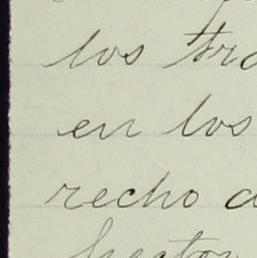 los tra
en los
recho d